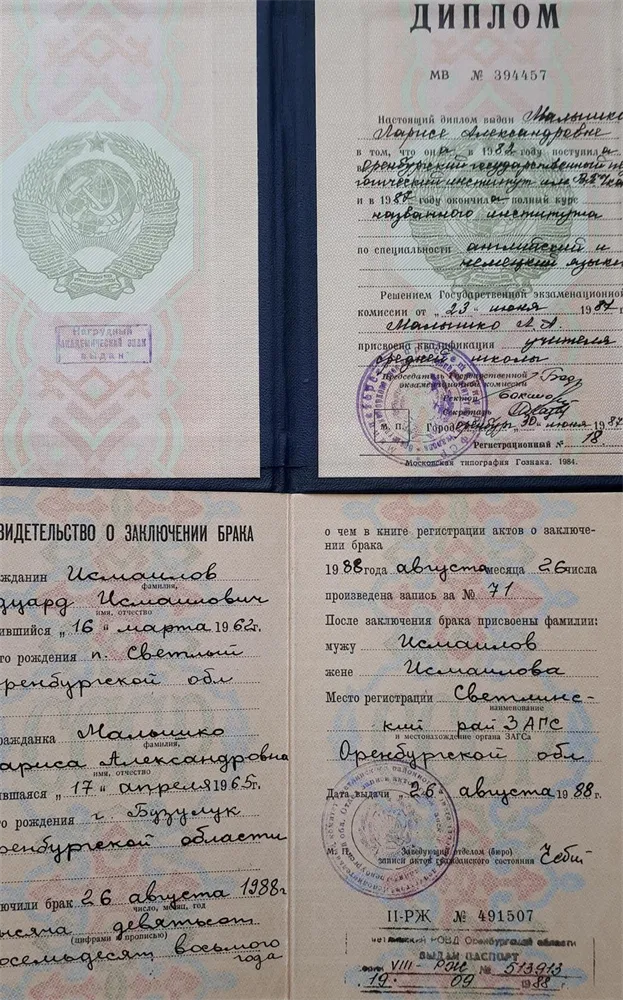 ДИПЛОМ
МВ № 394457
Настоящий диплом выдан Малышко
Ларисе Александровне
в том, что она в 1982 году поступила
в Оренбургский государственный пе
гогический институт им.
и в 1987 году окончила полный курс
названного института
по специальности английский и
немецкий языки
Решением Государственной экзаменационной
комиссии от „23" июня 1987 г
Малышко Л.А.
присвоена квалификация учителя
средней школы
Председатель Государственной
экзаменационной комиссии
Ректор
Секретарь
М. П. Город Оренбург 30 июня 1987
Регистрационный № 18
Московская типография Гознака. 1984.
Нагрудный
академический знак
выдан
ВИДЕТЕЛЬСТВО О ЗАКЛЮЧЕНИИ БРАКА
жданин Исмаилов
фамилия,
дуард Исмаилович
имя, отчество
ившийся „16" марта 1962 г.
то рождения п. Светлый
ренбургской обл
ражданка Малышко
фамилия,
ариса Александровна
имя, отчество
ившаяся „17" апреля 1965 г.
то рождения г. Бузулук
ренбургской области
ючили брак 26 августа 1988 г
число, месяц, год
ысяча девятьсот
(цифрами и прописью)
осемьдесят восьмого
года
о чем в книге регистрации актов о заключе-
нии брака
1988 года августа месяца 26 числа
произведена запись за № 71
После заключения брака присвоены фамилии:
мужу Исмаилов
жене Исмаилова
Место регистрации Светлинс-
наименование
кий рай ЗАГС
и местонахождение органа ЗАГСа
Оренбургской обл
Дата выдачи „26" августа 1988 г.
М. П. Заведующий отделом (бюро)
записи актов гражданского состояния
II-РЖ № 491507
РОВД Оренбургской области
ВЫДАН ПАСПОРТ
VIII-РОЖ № 513913
19. 09 1988 г.